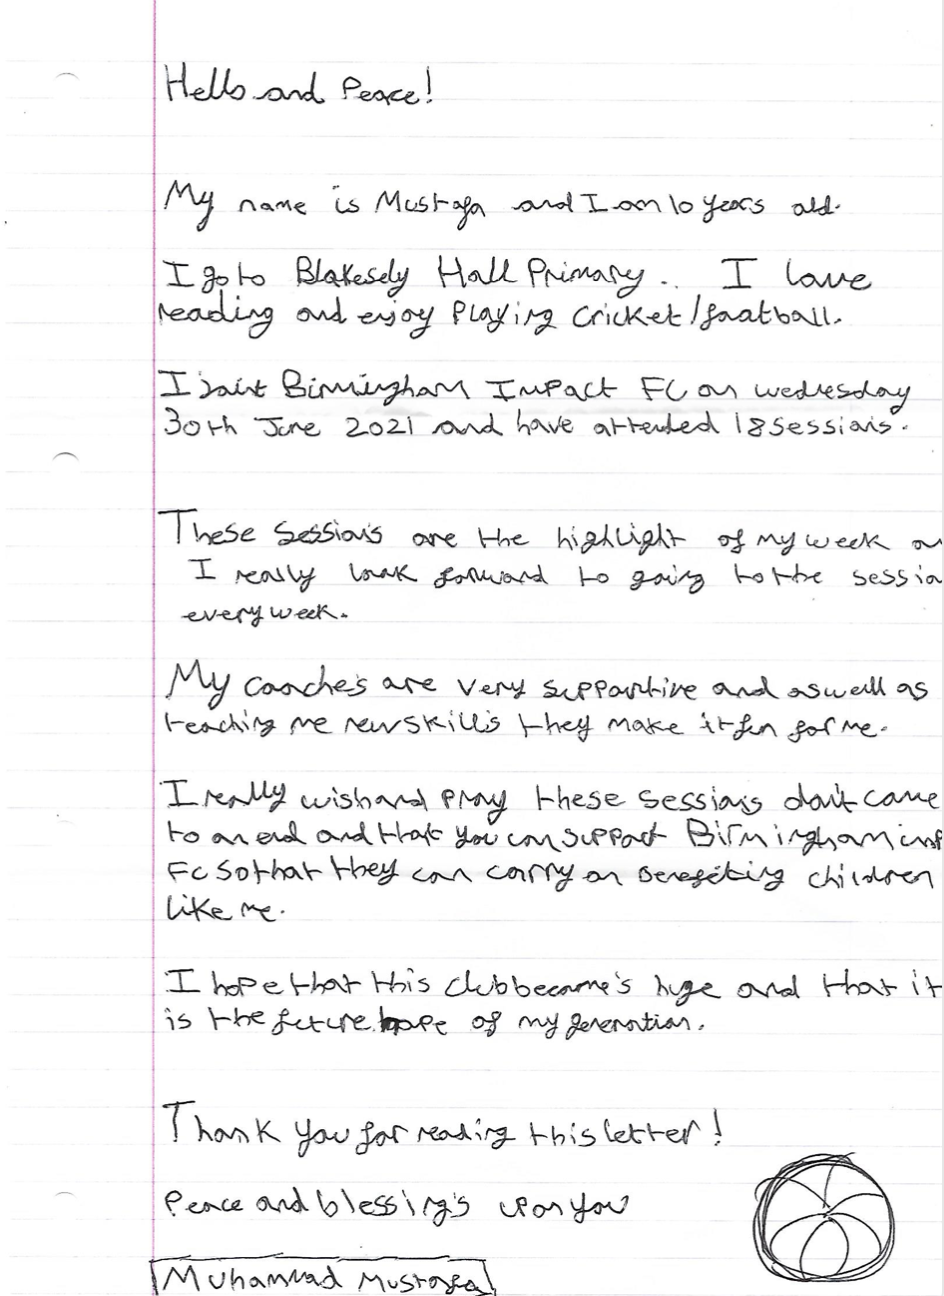 Hello and Peace!
My name is Mustafa and I am 10 years old.
I go to Blakesely Hall Primary. I love
reading and enjoy Playing Cricket/football.
I joint Birmingham Impact FC on wednesday
30th June 2021 and have attended 18 sessions.
These sessions are the highlight of my week an
I really look forward to going to the sessio
every week.
My coaches are very supportive and aswell as
teaching me new skills they make it fun for me.
I really wish and pray these sessions don't come
to an end and that you can support Birmingham imp
Fc So that they can carry on benefiting children
like me.
I hope that this club become's huge and that it
is the future hope of my generation.
Thank you for reading this letter!
Peace and blessing's upon you
Muhammad Mustafa